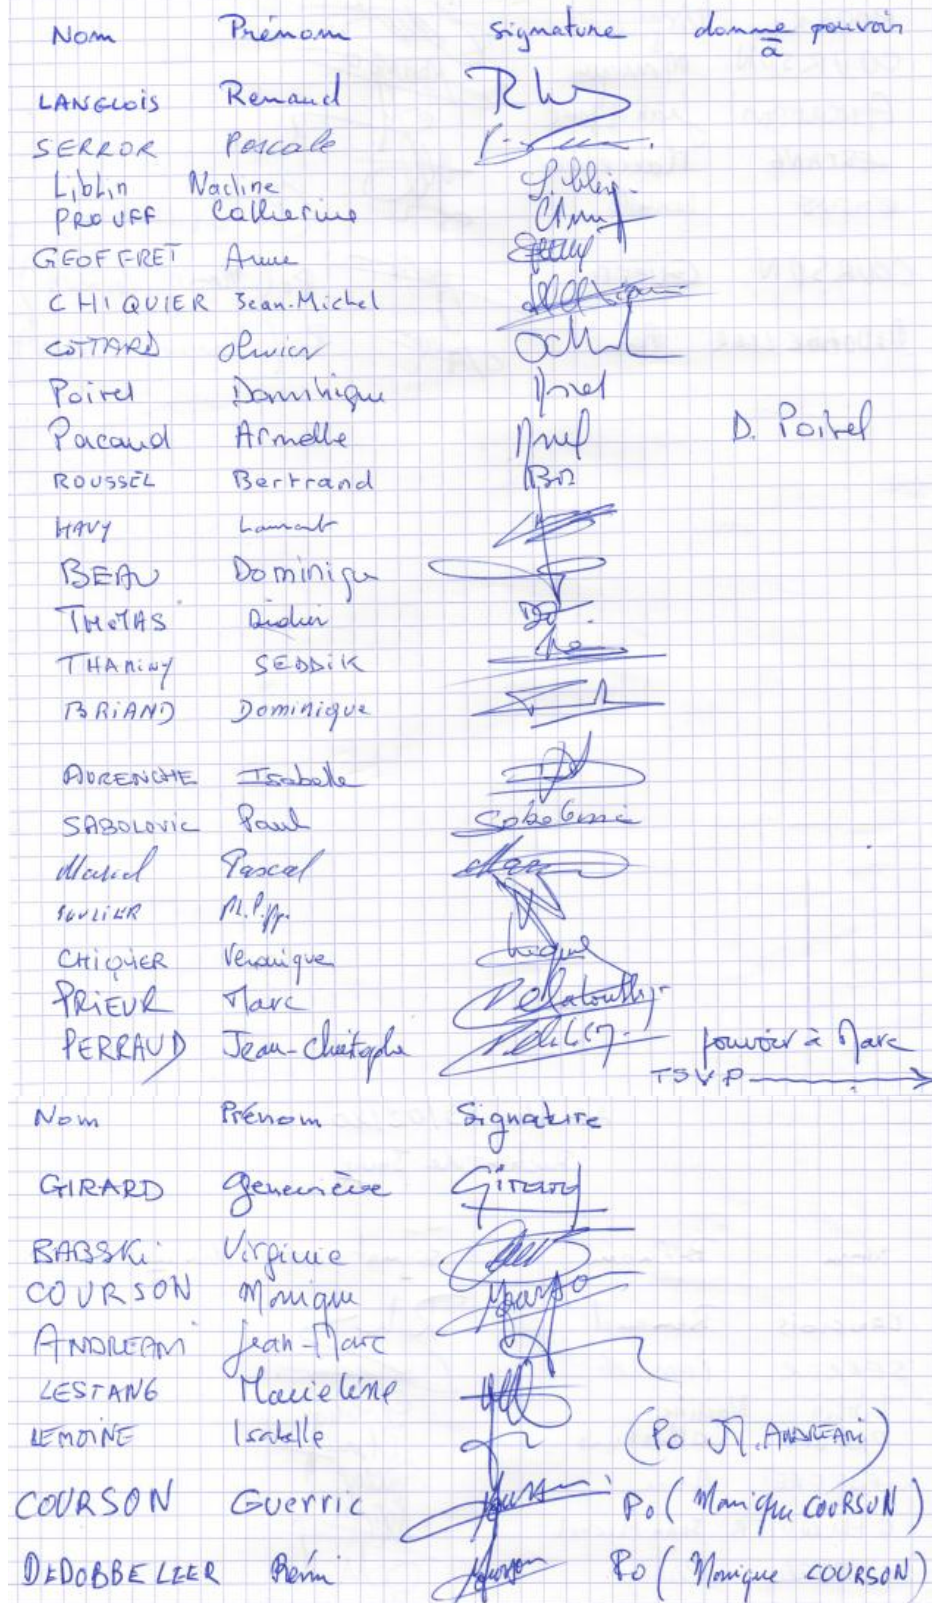 Nom Prénom signature donne pouvoir à
LANGLOIS Renaud
SERROR Pascale
Liblin Nadine
PROUFF Catherine
GEOFFRET Anne
CHIQUIER Jean-Michel
COTTARD Olivier
Poirel Dominique
Pacaud Armelle D. Poirel
ROUSSEL Bertrand
HAVY Laurent
BEAU Dominique
THOMAS Didier
THAMINY SEDDIK
BRIAND Dominique
AURENCHE Isabelle
SABOLOVIC Paul
Pascal
SOULIER
CHIQUIER Véronique
PRIEUR Marc
PERRAUD Jean-Christophe pouvoir à Marc
TSVP
Nom Prénom Signature
GIRARD Geneviève Girard
BABSKi Virginie
COURSON Monique
ANDREANI Jean-Marc
LESTANG Marieline
LEMOINE Isabelle (Po JM. ANDREANI)
COURSON Guerric Po (Monique COURSON)
DEDOBBELEER Rémi Po (Monique COURSON)